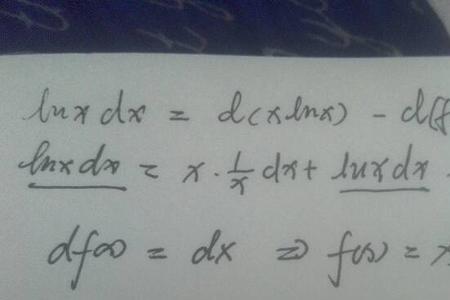 ln x dx = d(x ln x) - d(f
ln x dx = x · 1/x dx + ln x dx
df(x) = dx ⇒ f(x) = x